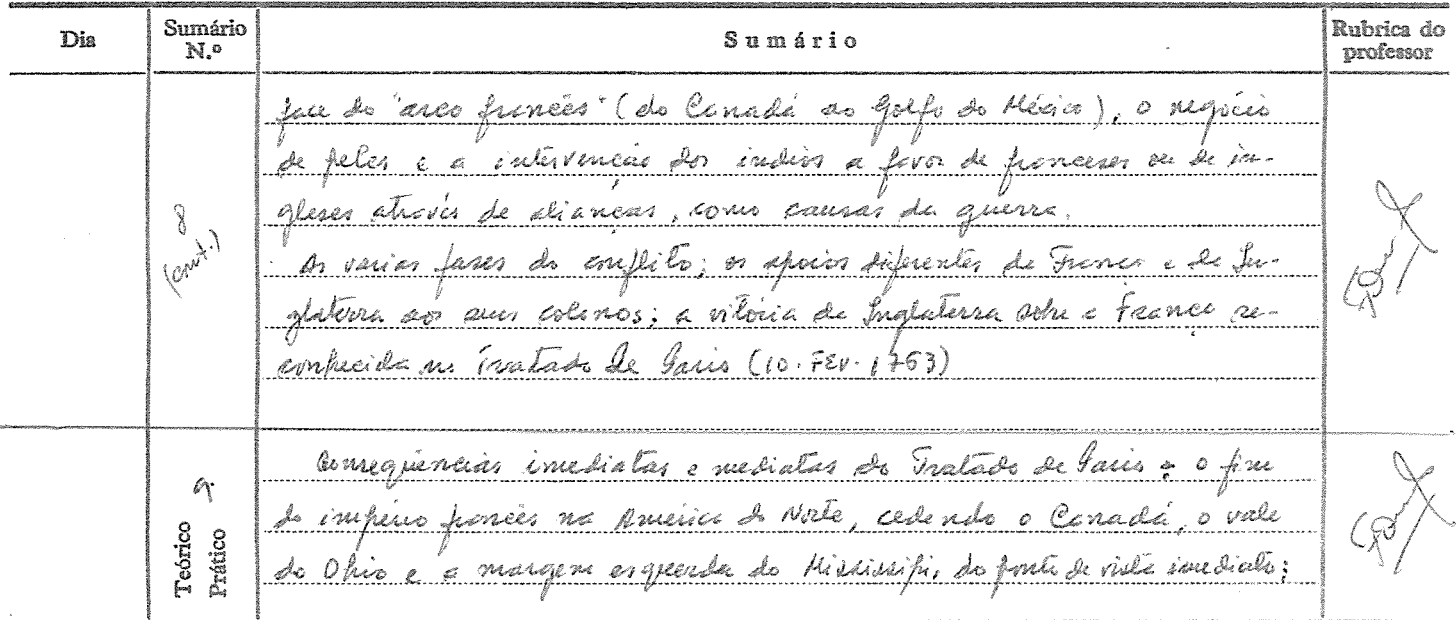 Dia
Sumário N.º
Sumário
Rubrica do professor
8 (cont.)
face do "arco francês" (do Canadá ao Golfo do México), o negócio
de peles e a intervenção dos índios a favor de franceses ou de in-
gleses através de alianças, como causas da guerra.
As várias fases do conflito; os apoios diferentes da França e da In-
glaterra aos seus colonos; a vitória da Inglaterra sobre a França re-
conhecida no Tratado de Paris (10. FEV. 1763)
Teórico
Prático
9.
Consequências imediatas e mediatas do Tratado de Paris: o fim
do império francês na América do Norte, cedendo o Canadá, o vale
do Ohio e a margem esquerda do Mississipi, do ponto de vista imediato;